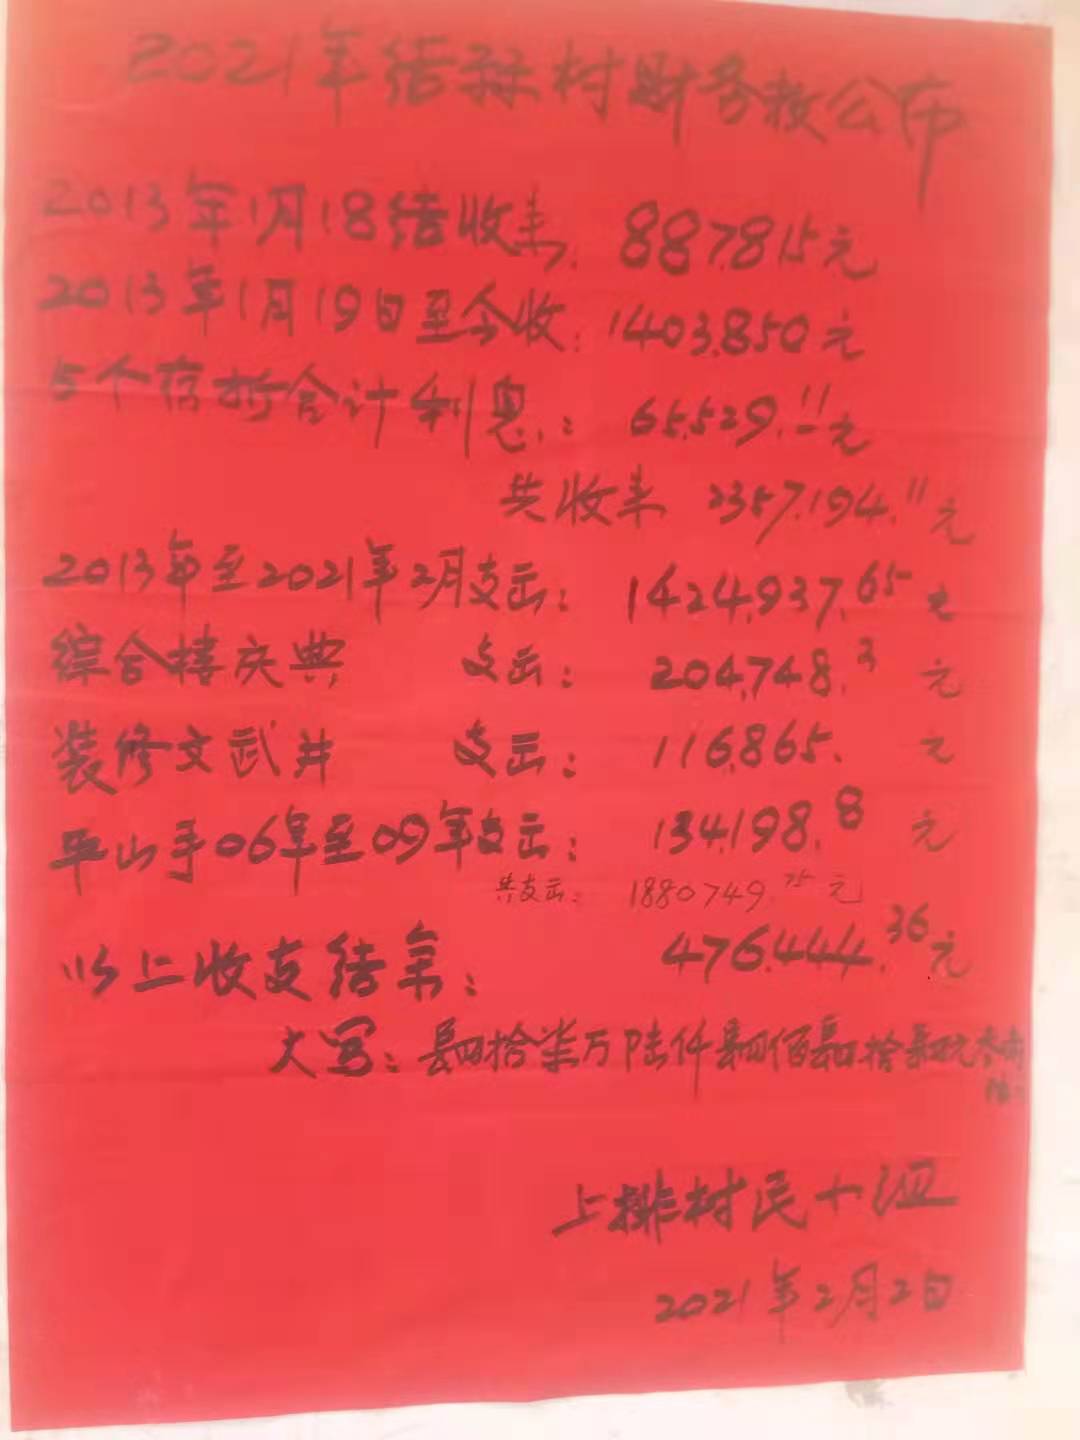 2021年结孙村财务数公布
2013年1月18结收来: 887,815元
2013年1月19日至今收: 1403,850元
5个存折合计利息: 65,529.11元
共收来 2357,194.11元
2013年至2021年2月支出: 1424,937.65元
综合楼庆典 支出: 204,748.3元
装修文武井 支出: 116,865.元
平山手06年至09年支出: 134,198.8元
共支出: 1880749.75元
以上收支结余: 476,444.36元
大写: 肆拾柒万陆仟肆佰肆拾肆元叁角
陆
上排村民十组
2021年2月2日